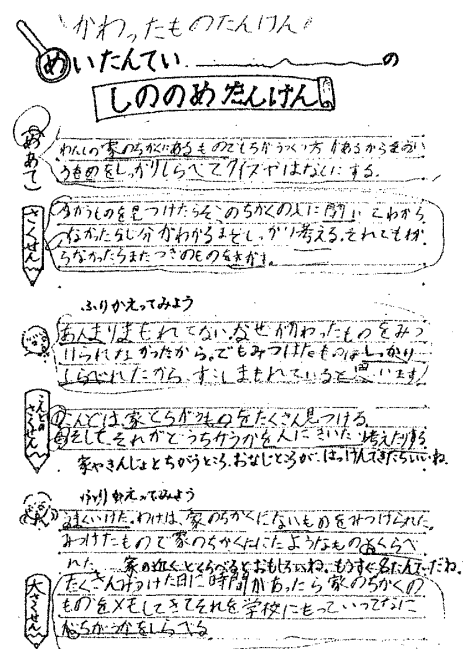 かわったものたんけん
めいたんてい の
しののめたんけん
めあて
わたしの家のちかくにあるものでもちがうつくり方があるから
うものをしっかりしらべてクイズやはなしにする。
さくせん
ちがうものを見つけたらそこのちかくの人に聞いてわから
なかったらじ分がわかるまでしっかり考える。それでもわか
らなかったらまたつぎのものをさがす。
ふりかえってみよう
あんまりまもれてない。なぜかかわったものをみつ
けられなかったから。でもみつけたものはしっかり
しらべれたから、すこしまもれていると思います。
こんどのさくせん
こんどは、家とちがうものをたくさん見つける。
そして、それがどうちがうかを人にきいたり考えたりする。
家やきんじょとちがうところ、おなじところが、はっけんできたらいいね。
ふりかえってみよう
うまくいけた。わけは、家のちかくにないものをみつけられた。
みつけたもので家のちかくににたようなものとくらべ
れた。 家の近くとくらべるとおもしろいね。もうすぐ名たんていだね。
大さくせん
たくさんみつけた日に時間があったら家のちかくの
ものをメモしてきてそれを学校にもっていってなに
がちがうかをしらべる